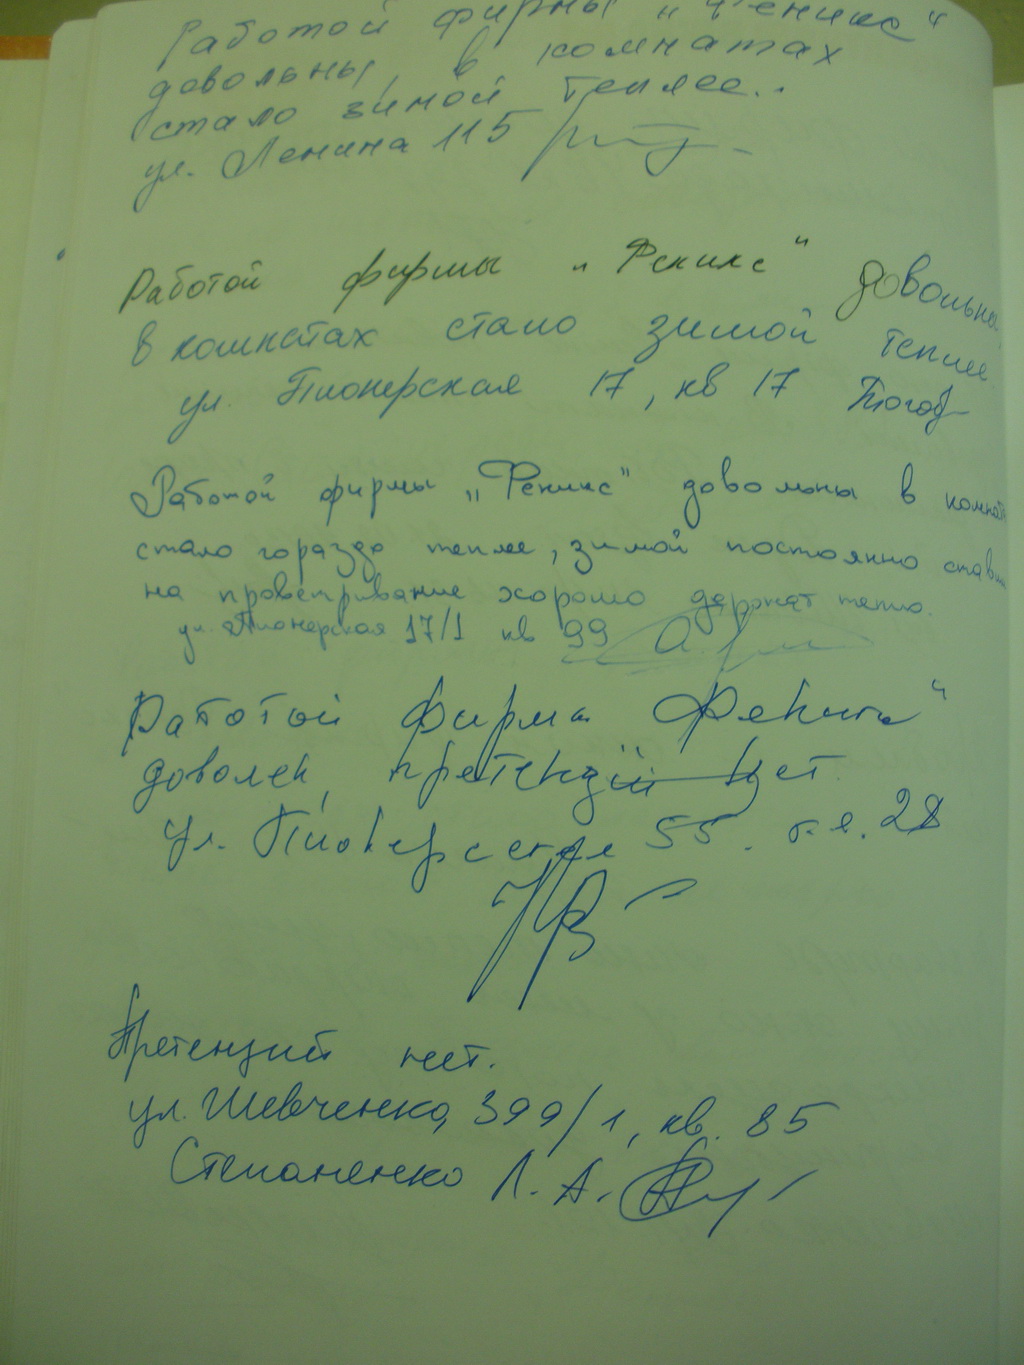 Работой фирмы „Феникс“
довольны, в комнатах
стало зимой теплее..
ул. Ленина 115
Работой фирмы „Феникс“ довольны
в комнатах стало зимой теплее
ул. Пионерская 17, кв 17
Работой фирмы „Феникс“ довольны в
стало гораздо теплее, зимой постоянно
на проветривание хорошо держат тепло.
ул. Пионерская 17/1 кв 99
Работой фирма Феникс“
доволен, претензий нет.
ул. Пионерская 55. 28
Претензий нет.
ул. Шевченко, 399/1, кв. 85
Степаненко Л. А.